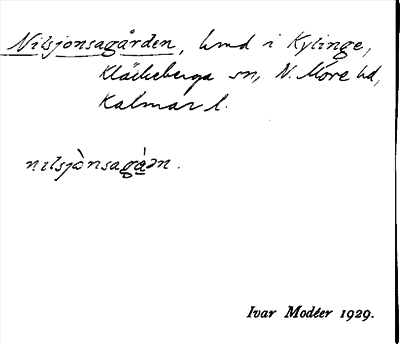 Nilsjonsagården, hmd i Kylinge,
Kläckeberga sn, N. Möre hd,
Kalmar l.
nilsjònsagàən.
Ivar Modéer 1929.